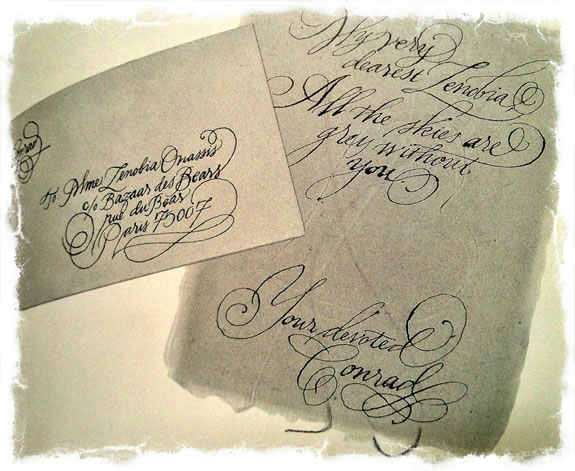 To Mme Zenobia Onassis
c/o Bazaar des Bears
rue du Bear
Paris 75007
My very
dearest Zenobia,
All the skies are
grey without
you.
Your devoted
Conrad